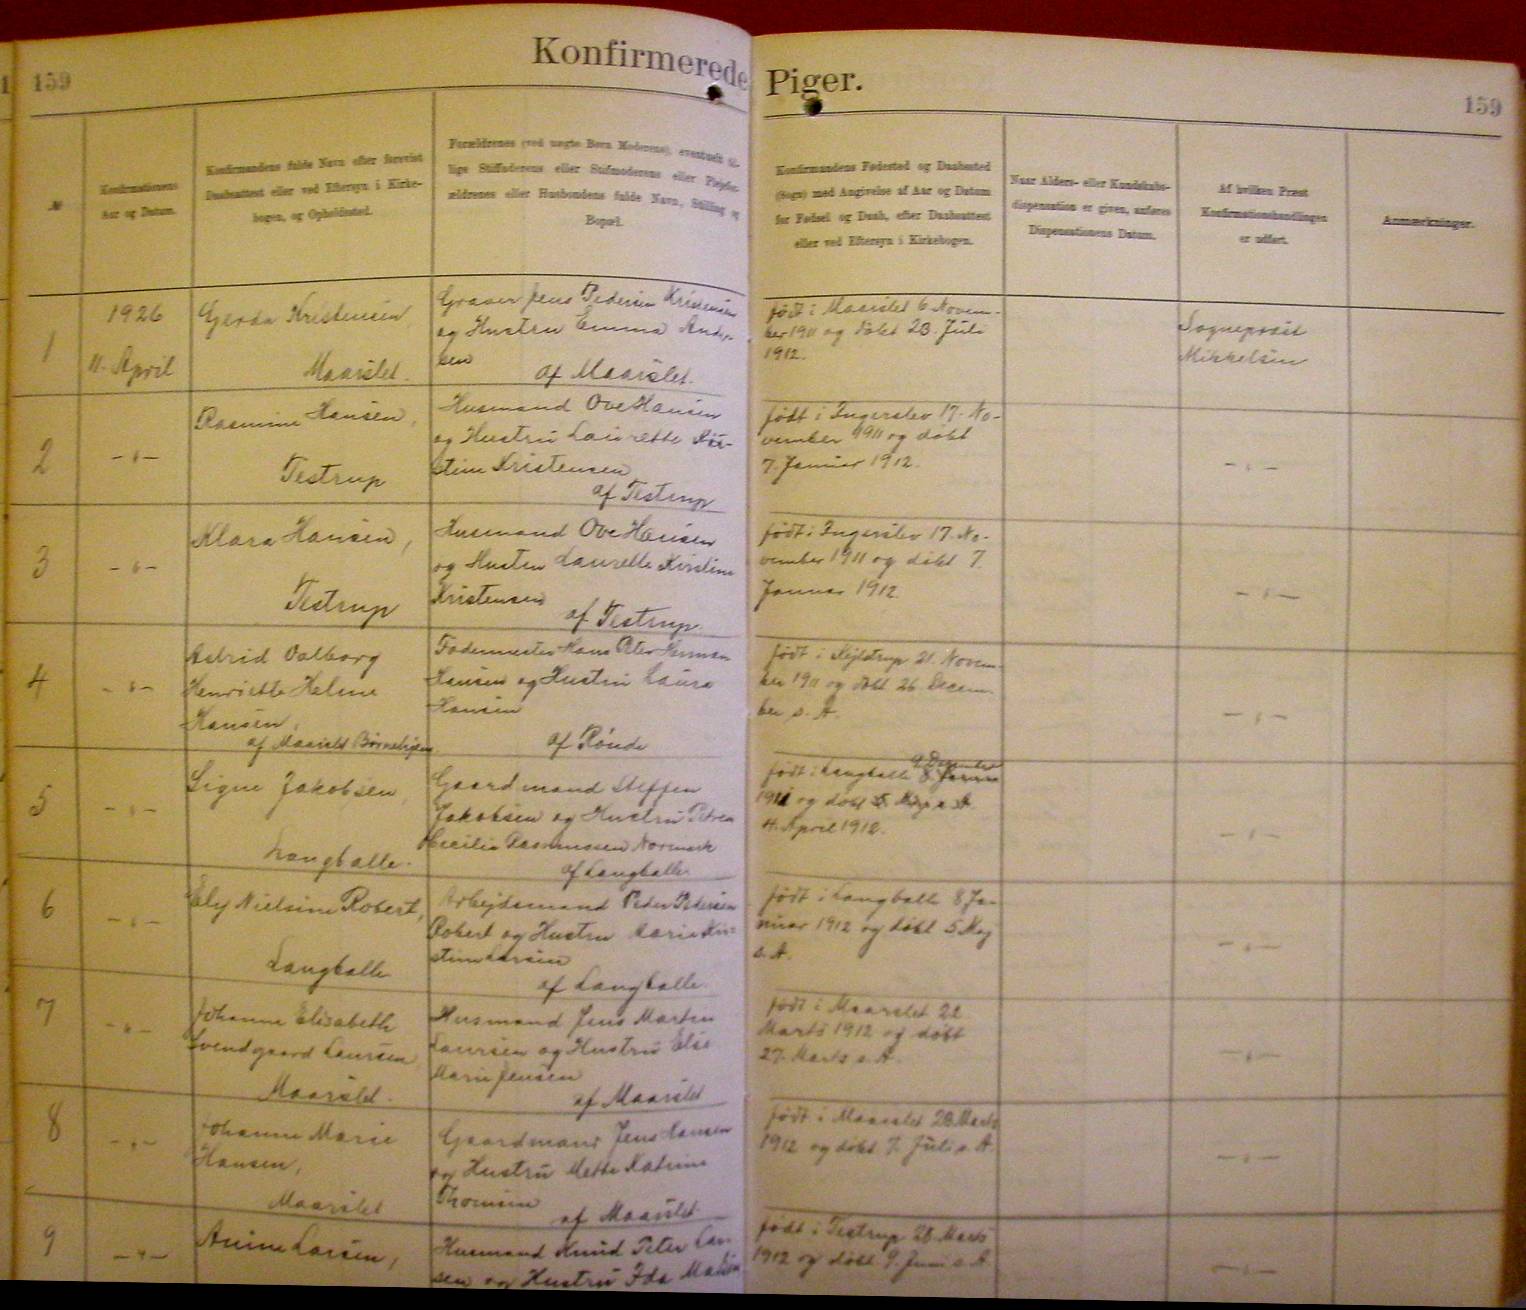 Konfirmerede Piger.
159
159
№
Konfirmationens
Aar og Datum.
Konfirmandens fulde Navn efter forevist
Daabsattest eller ved Eftersyn i Kirke-
bogen, og Opholdssted.
Forældrenes (ved uægte Børn Moderens), eventuelt til-
lige Stiffaderens eller Stifmoderens eller Plejefor-
ældrenes eller Husbondens fulde Navn, Stilling og
Bopæl.
Konfirmandens Fødested og Daabssted
(Sogn) med Angivelse af Aar og Datum
for Fødsel og Daab, efter Daabsattest
eller ved Eftersyn i Kirkebogen.
Naar Alders- eller Kundskabs-
dispensation er given, anføres
Dispensationens Datum.
Af hvilken Præst
Konfirmationshandlingen
er udført.
Anmærkninger.
1
1926
11. April
Gerda Kristensen,
Maarslet.
Graver Jens Pedersen Kristensen
og Hustru Emma Ander-
sen
af Maarslet.
født i Maarslet 6 Novem-
ber 1911 og døbt 23. Juli
1912.
Sognepræst
Mikkelsen
2
- " -
Rasmine Hansen,
Testrup
Husmand Ove Hansen
og Hustru Laurette Kir-
stine Kristensen
af Testrup
født i Ingerslev 17. No-
vember 1911 og døbt
7. Januar 1912.
- " -
3
- " -
Klara Hansen,
Testrup
Husmand Ove Hansen
og Hustru Laurette Kirstine
Kristensen
af Testrup.
født i Ingerslev 17. No-
vember 1911 og døbt 7.
Januar 1912.
- " -
4
- " -
Astrid Valborg
Henriette Helene
Hansen,
af Maarslet Børnehjem.
Fodermester Hans Peter Herman
Hansen og Hustru Laura
Hansen
af Rønde
født i 21. Novem-
ber 1911 og døbt 26. Decem-
ber s. A.
- " -
5
- " -
Signe Jakobsen,
Langballe.
Gaardmand Steffen
Jakobsen og Hustru Petrea
Cecilie Rasmussen Normark
af Langballe.
9. December
født i Langballe 8. Januar
1911 og døbt 5. Maj s. A.
4. April 1912.
- " -
6
- " -
Ely Nielsine Robert,
Langballe
Arbejdsmand Peder Pedersen
Robert og Hustru Karie Kir-
stine Larsen
af Langballe.
født i Langballe 8 Ja-
nuar 1912 og døbt 5 Maj
s. A.
- " -
7
- " -
Johanne Elisabeth
Svendgaard Laursen
Maarslet.
Husmand Jens Morten
Laursen og Hustru Else
Marie Jensen
af Maarslet
født i Maarslet 22
Marts 1912 og døbt
27. Marts s. A.
- " -
8
- " -
Johanne Marie
Hansen,
Maarslet
Gaardmand Jens Hansen
og Hustru Mette Katrine
Thomsen
af Maarslet.
født i Maarslet 28 Marts
1912 og døbt 7. Juli s. A.
- " -
9
- " -
Anine Larsen,
Husmand Knud Peter Lar-
sen og Hustru Ida
født i Testrup 28 Marts
1912 og døbt 9. Juni s. A.
- " -